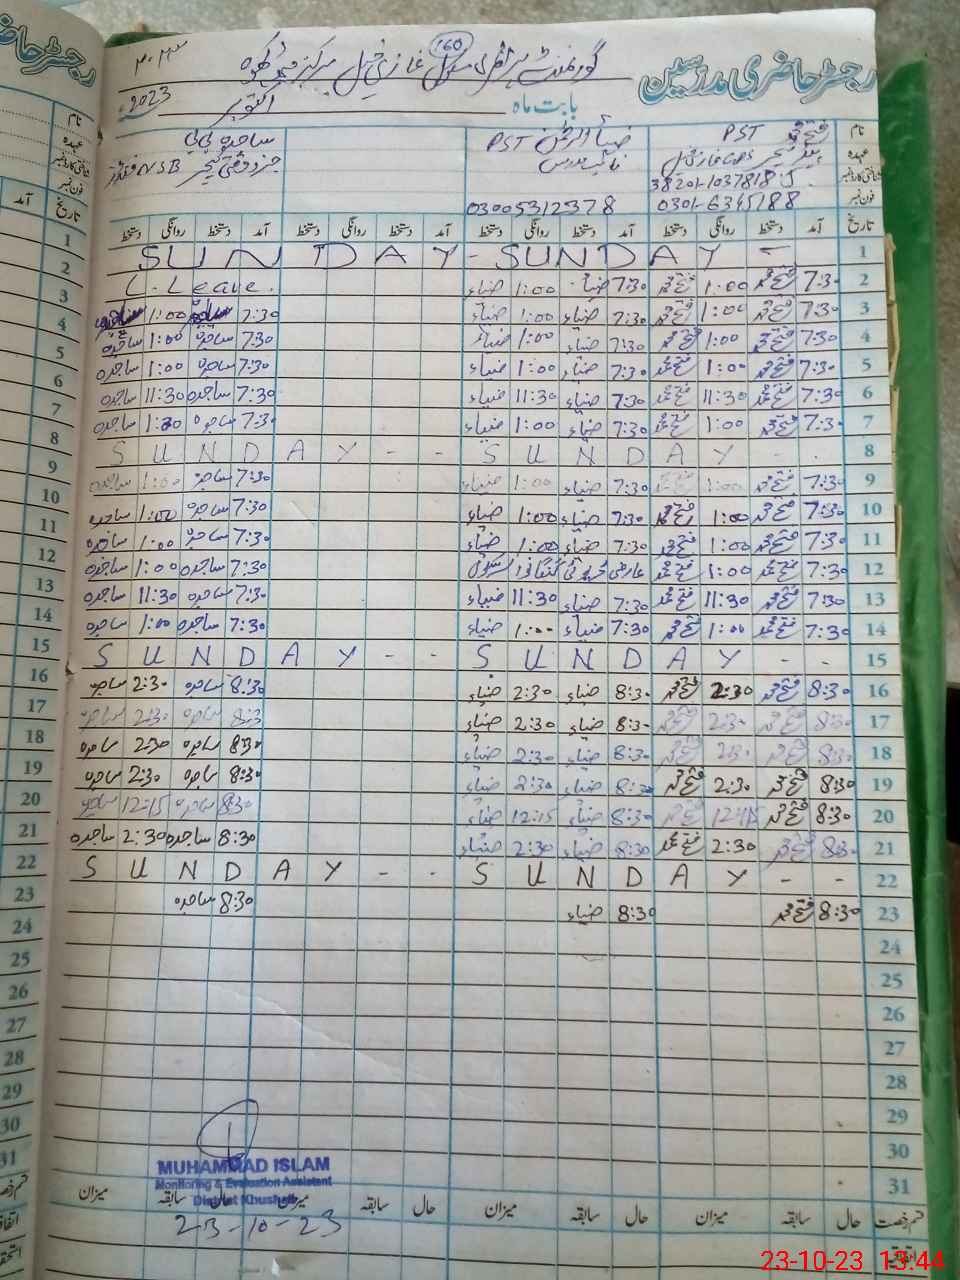 رجسٹر حاضری مدرسین
160
گورنمنٹ پرائمری سکول غازی خیل مرکز
بابت ماہ اکتوبر 2023ء
نام فتح محمد PST ضیاء الرحمٰن PST ساجدہ بی بی
عہدہ ٹیچر GPS غازی خیل نائب مدرس جزوقتی ٹیچر NSB فنڈز
شناختی کارڈ نمبر
فون نمبر 0301-6345188 03005312378
تاریخ آمد دستخط روانگی دستخط آمد دستخط روانگی دستخط آمد دستخط روانگی دستخط آمد دستخط روانگی دستخط
1 SUNDAY - SUNDAY -
2 7:30 فتح محمد 1:00 فتح محمد 7:30 ضیاء 1:00 ضیاء C. Leave.
3 7:30 فتح محمد 1:00 فتح محمد 7:30 ضیاء 1:00 ضیاء 7:30 ساجدہ 1:00 ساجدہ
4 7:30 فتح محمد 1:00 فتح محمد 7:30 ضیاء 1:00 ضیاء 7:30 ساجدہ 1:00 ساجدہ
5 7:30 فتح محمد 1:00 فتح محمد 7:30 ضیاء 1:00 ضیاء 7:30 ساجدہ 1:00 ساجدہ
6 7:30 فتح محمد 11:30 فتح محمد 7:30 ضیاء 11:30 ضیاء 7:30 ساجدہ 11:30 ساجدہ
7 7:30 فتح محمد 1:00 فتح محمد 7:30 ضیاء 1:00 ضیاء 7:30 ساجدہ ساجدہ
8 SUNDAY - - SUNDAY - -
9 7:30 فتح محمد 1:00 فتح محمد 7:30 ضیاء 1:00 ضیاء 7:30 ساجدہ 1:00 ساجدہ
10 7:30 فتح محمد 1:00 فتح محمد 7:30 ضیاء 1:00 ضیاء 7:30 ساجدہ 1:00 ساجدہ
11 7:30 فتح محمد 1:00 فتح محمد 7:30 ضیاء 1:00 ضیاء 7:30 ساجدہ 1:00 ساجدہ
12 7:30 فتح محمد 1:00 فتح محمد عارضی سکول 7:30 ساجدہ 1:00 ساجدہ
13 7:30 فتح محمد 11:30 فتح محمد 7:30 ضیاء 11:30 ضیاء 7:30 ساجدہ 11:30 ساجدہ
14 7:30 فتح محمد 1:00 فتح محمد 7:30 ضیاء 1:00 ضیاء 7:30 ساجدہ 1:00 ساجدہ
15 SUNDAY - - SUNDAY - -
16 8:30 فتح محمد 2:30 فتح محمد 8:30 ضیاء 2:30 ضیاء 8:30 ساجدہ 2:30 ساجدہ
17 8:30 فتح محمد 2:30 فتح محمد 8:30 ضیاء 2:30 ضیاء 8:30 ساجدہ 2:30 ساجدہ
18 8:30 فتح محمد 2:30 فتح محمد 8:30 ضیاء 2:30 ضیاء 8:30 ساجدہ 2:30 ساجدہ
19 8:30 فتح محمد 2:30 فتح محمد 8:30 ضیاء 2:30 ضیاء 8:30 ساجدہ 2:30 ساجدہ
20 8:30 فتح محمد 12:15 فتح محمد 8:30 ضیاء 12:15 ضیاء 8:30 ساجدہ 12:15 ساجدہ
21 8:30 فتح محمد 2:30 فتح محمد 8:30 ضیاء 2:30 ضیاء 8:30 ساجدہ 2:30 ساجدہ
22 SUNDAY - - SUNDAY - -
23 8:30 فتح محمد 8:30 ضیاء 8:30 ساجدہ
24
25
26
27
28
29
30
31
MUHAMMAD ISLAM
Monitoring & Evaluation Assistant
District Khushab
قسم رخصت حال سابقہ میزان حال سابقہ میزان حال سابقہ میزان حال سابقہ میزان
23-10-23
اتفاقیہ
23-10-23 13:44